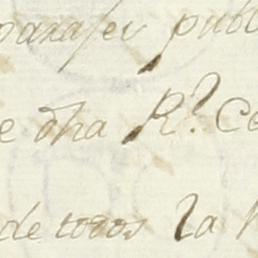 para ser publ
e dha R.ˡ Ce
de todos la